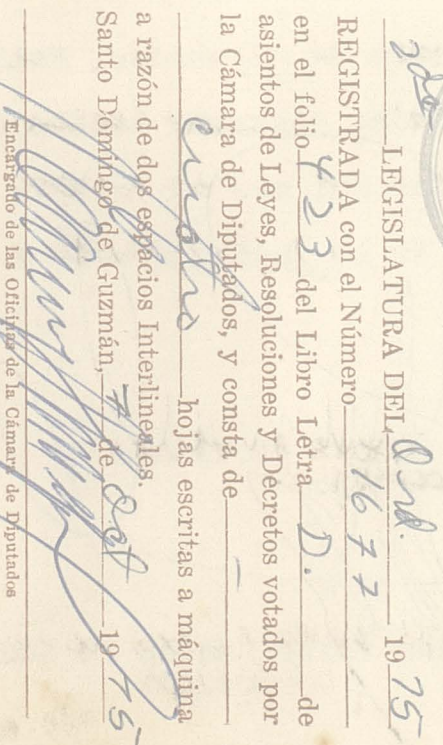 2da LEGISLATURA DEL Ord. 1975
REGISTRADA con el Número 1677
en el folio 423 del Libro Letra D. de
asientos de Leyes, Resoluciones y Decretos votados por
la Cámara de Diputados, y consta de
cuatro hojas escritas a máquina
a razón de dos espacios Interlineales.
Santo Domingo de Guzmán, 7 de Oct 1975
Encargado de las Oficinas de la Cámara de Diputados